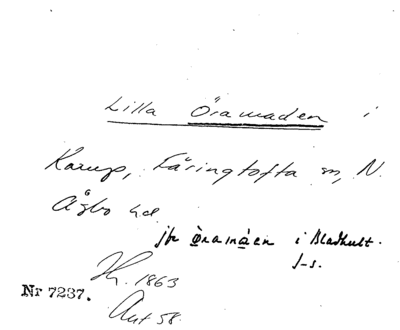 Lilla Öramaden i
Karup, Färingtofta sn, N.
Åsbo hd
jfr Öramaen i Bladhult.
J-s.
1863
Nr 7237.
Ant 58.